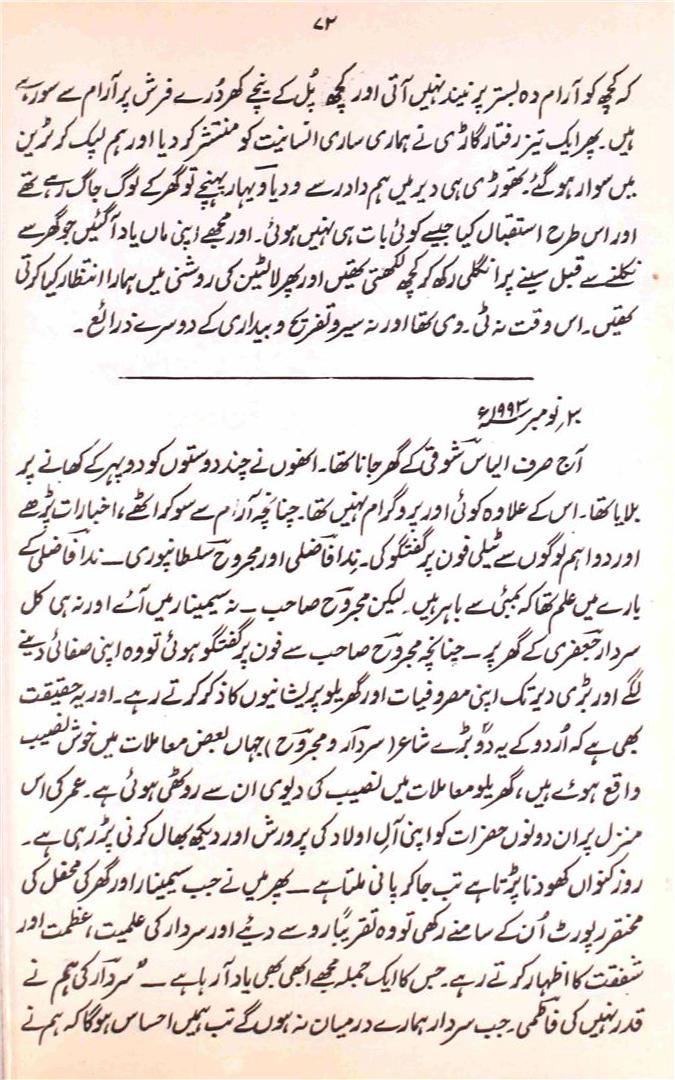 ۷۲
کہ کچھ کو آرام دہ بستر پر نیند نہیں آتی اور کچھ پُل کے نیچے کھردُرے فرش پر آرام سے سو رہے
ہیں۔ پھر ایک تیز رفتار گاڑی نے ہماری ساری انسانیت کو منتشر کر دیا اور ہم لپک کر ٹرین
میں سوار ہو گئے۔ تھوڑی ہی دیر میں ہم دادر سے ودیا ویہار پہنچے تو گھر کے لوگ جاگ رہے تھے
اور اس طرح استقبال کیا جیسے کوئی بات ہی نہیں ہوئی۔ اور مجھے اپنی ماں یاد آگئیں جو گھر سے
نکلنے سے قبل سینے پر انگلی رکھ کر کچھ لکھتی تھیں اور پھر لالٹین کی روشنی میں ہمارا انتظار کیا کرتی
تھیں۔ اس وقت نہ ٹی۔ وی تھا اور نہ سیر و تفریح و بیداری کے دوسرے ذرائع۔
۲؍ نومبر ۱۹۹۲ء
آج صرف الیاس شوقی کے گھر جانا تھا۔ انھوں نے چند دوستوں کو دوپہر کے کھانے پر
بلایا تھا۔ اس کے علاوہ کوئی اور پروگرام نہیں تھا۔ چنانچہ آرام سے سو کر اٹھے، اخبارات پڑھے
اور دو اہم لوگوں سے ٹیلی فون پر گفتگو کی۔ نِدا فاضلی اور مجروح سلطانپوری ــ ندا فاضلی کے
بارے میں علم تھا کہ بمبئی سے باہر ہیں۔ لیکن مجروح صاحب ــ نہ سیمینار میں آئے اور نہ ہی کل
سردار جعفری کے گھر پر ــ چنانچہ مجروح صاحب سے فون پر گفتگو ہوئی تو وہ اپنی صفائی دینے
لگے اور بڑی دیر تک اپنی مصروفیات اور گھریلو پریشانیوں کا ذکر کرتے رہے۔ اور یہ حقیقت
بھی ہے کہ اُردو کے یہ دو بڑے شاعر (سردار و مجروح) جہاں بعض معاملات میں خوش نصیب
واقع ہوئے ہیں، گھریلو معاملات میں نصیب کی دیوی ان سے روٹھی ہوئی ہے۔ عمر کی اس
منزل پر ان دونوں حضرات کو اپنی آل اولاد کی پرورش اور دیکھ بھال کرنی پڑ رہی ہے۔
روز کنواں کھودنا پڑتا ہے تب جا کر پانی ملتا ہے ــ پھر میں نے جب سیمینار اور گھر کی محفل کی
مختصر رپورٹ اُن کے سامنے رکھی تو وہ تقریباً رو سے دیئے اور سردار کی علمیت، عظمت اور
شفقت کا اظہار کرتے رہے۔ جس کا ایک جملہ مجھے ابھی بھی یاد آ رہا ہے ــ "سردار کی ہم نے
قدر نہیں کی فاطمی۔ جب سردار ہمارے درمیان نہ ہوں گے تب ہمیں احساس ہوگا کہ ہم نے